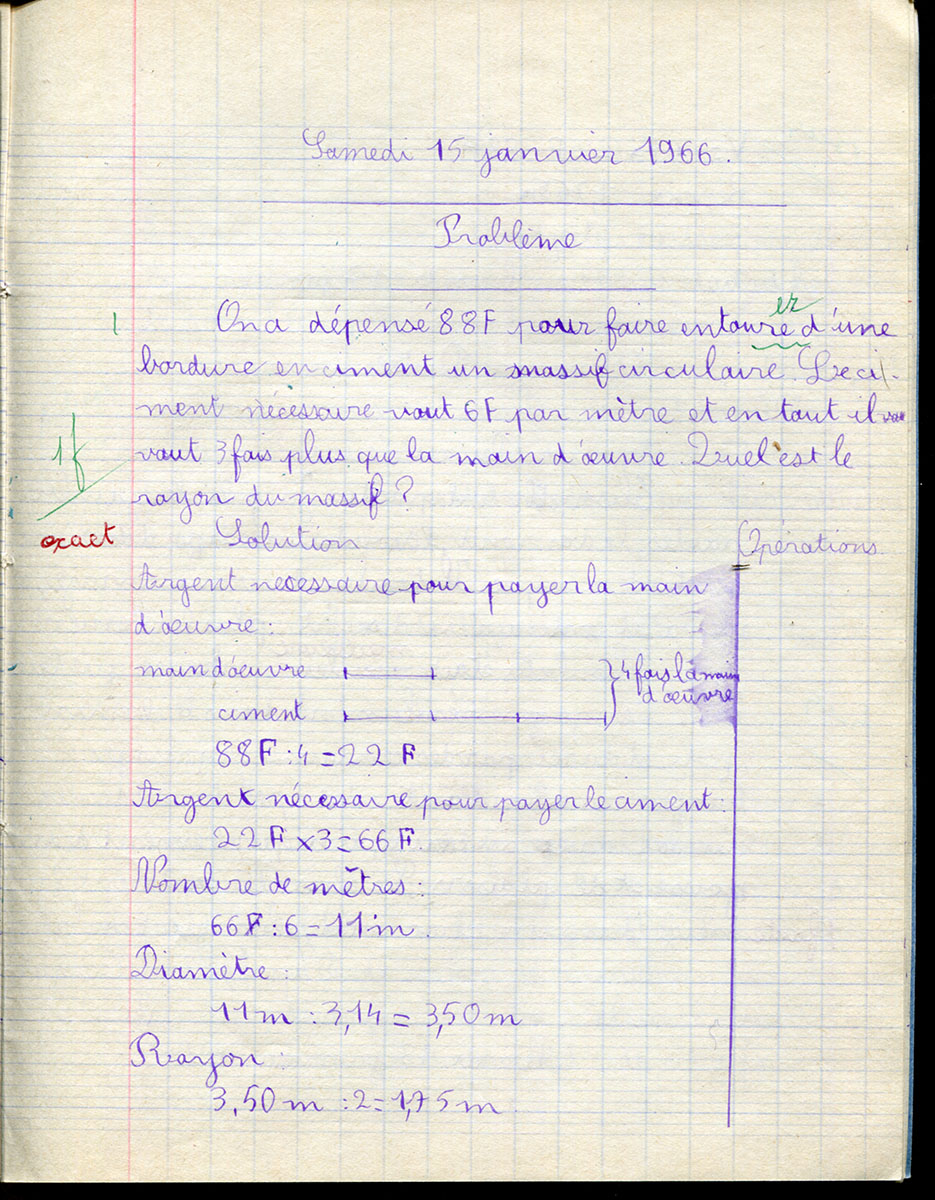 Samedi 15 janvier 1966.
Problème
er
1 On a dépensé 88F pour faire entouré d'une
bordure en ciment un massif circulaire. Le ci-
ment nécessaire vaut 6F par mètre et en tout il
1f vaut 3 fois plus que la main d'œuvre. Quel est le
rayon du massif ?
exact Solution Opérations.
Argent necessaire pour payer la main
d'œuvre :
main d'œuvre } 4 fois la main
d'œuvre
ciment
88F : 4 = 22 F
Argent nécessaire pour payer le ciment :
22 F x 3 = 66 F.
Nombre de mètres :
66F : 6 = 11 m.
Diamètre :
11 m : 3,14 = 3,50 m
Rayon :
3,50 m : 2 = 1,75 m